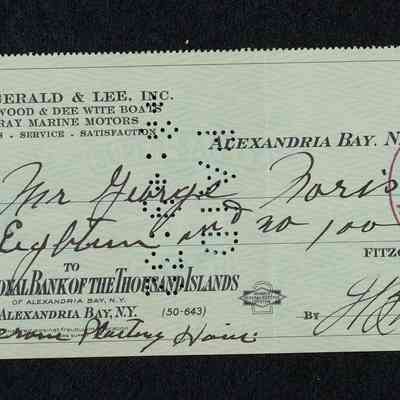 GERALD & LEE, INC.
WOOD & DEE WITE BOATS
RAY MARINE MOTORS
S - SERVICE - SATISFACTION
ALEXANDRIA BAY, N.
Mr George Noris
Eighteen and no/00
FITZG
TO
ONAL BANK OF THE THOUSAND ISLANDS
OF ALEXANDRIA BAY, N.Y.
ALEXANDRIA BAY, N.Y. (50-643)
BY